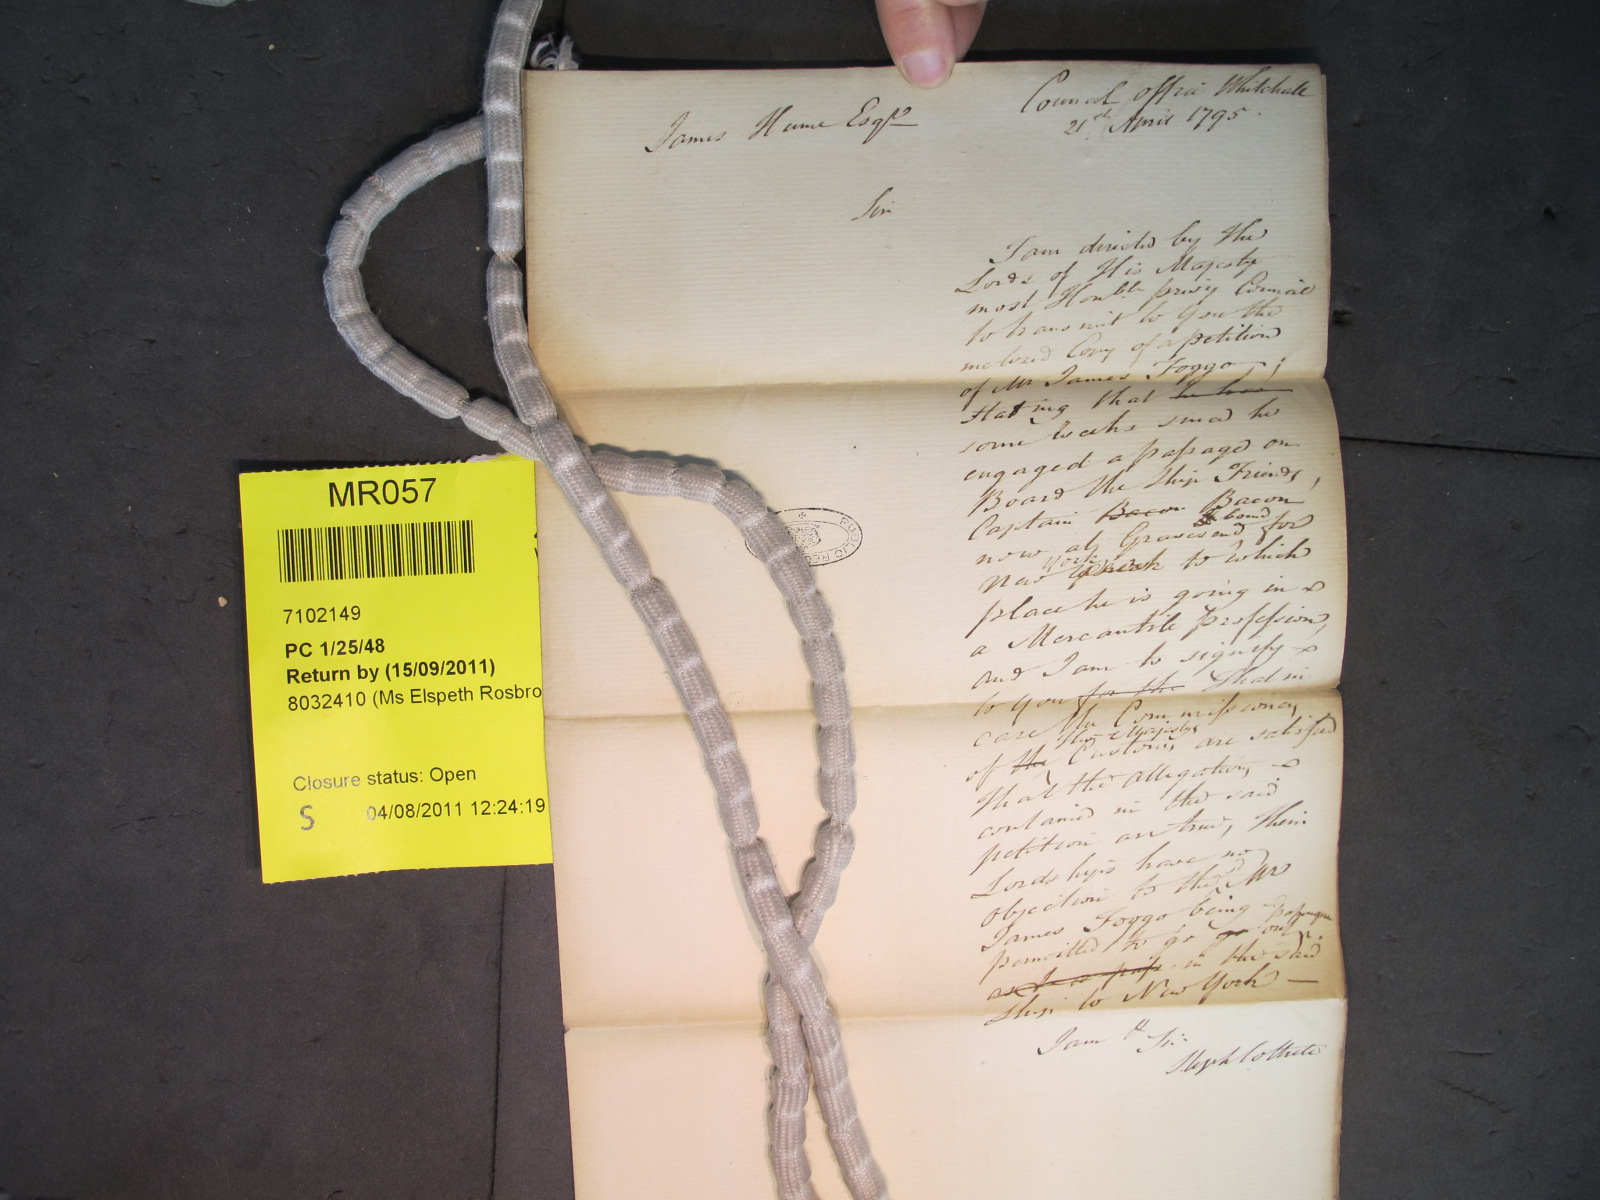 Council Office Whitehall
21st April 1795
James Hume Esqre
Sir
I am directed by the
Lords of His Majestys
most Honble privy Council
to transmit to You the
inclosed Copy of a petition
of Mr James Foggo,
stating that he has
some Weeks since he
engaged a passage on
Board the Ship Friends,
Captain Bacon Bacon
now at Gravesend bound for
New York to which
place he is going in
a Mercantile Profession,
and I am to signify
to You for the that in
case the Commissioners
of the His Majestys Customs are satisfied
that the allegations
contained in the said
petition are true, Their
Lordships have no
Objection to the sd Mr
James Foggo being
permitted to go go out Passenger
as a pass in the said
Ship to New York —
I am Sir
Steph Cottrell
PUBLIC REC
MR057
7102149
PC 1/25/48
Return by (15/09/2011)
8032410 (Ms Elspeth Rosbro
Closure status: Open
S 04/08/2011 12:24:19